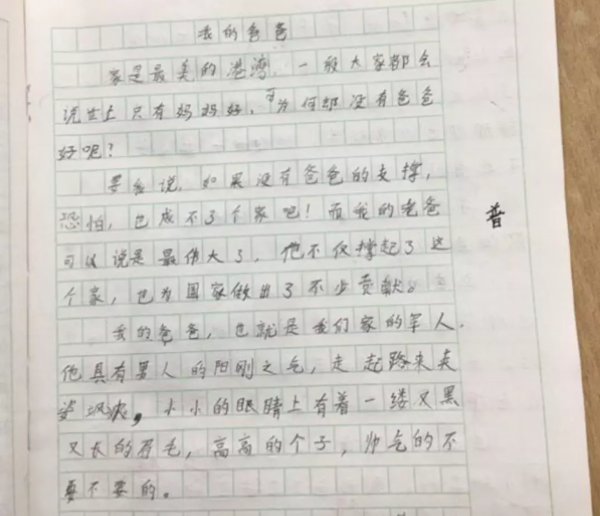 我的爸爸
家是最美的港湾，一般大家都会
说世上只有妈妈好，可为何却没有爸爸
好呢？
要我说，如果没有爸爸的支撑，
恐怕，也成不了个家吧！而我的爸爸
可以说是最伟大了，他不仅撑起了这
个家，也为国家做出了不少贡献。
我的爸爸，也就是我们家的军人.
他具有男人的阳刚之气，走起路来英
姿飒爽，小小的眼睛上有着一缕又黑
又长的眉毛，高高的个子，帅气的不
要不要的。
普